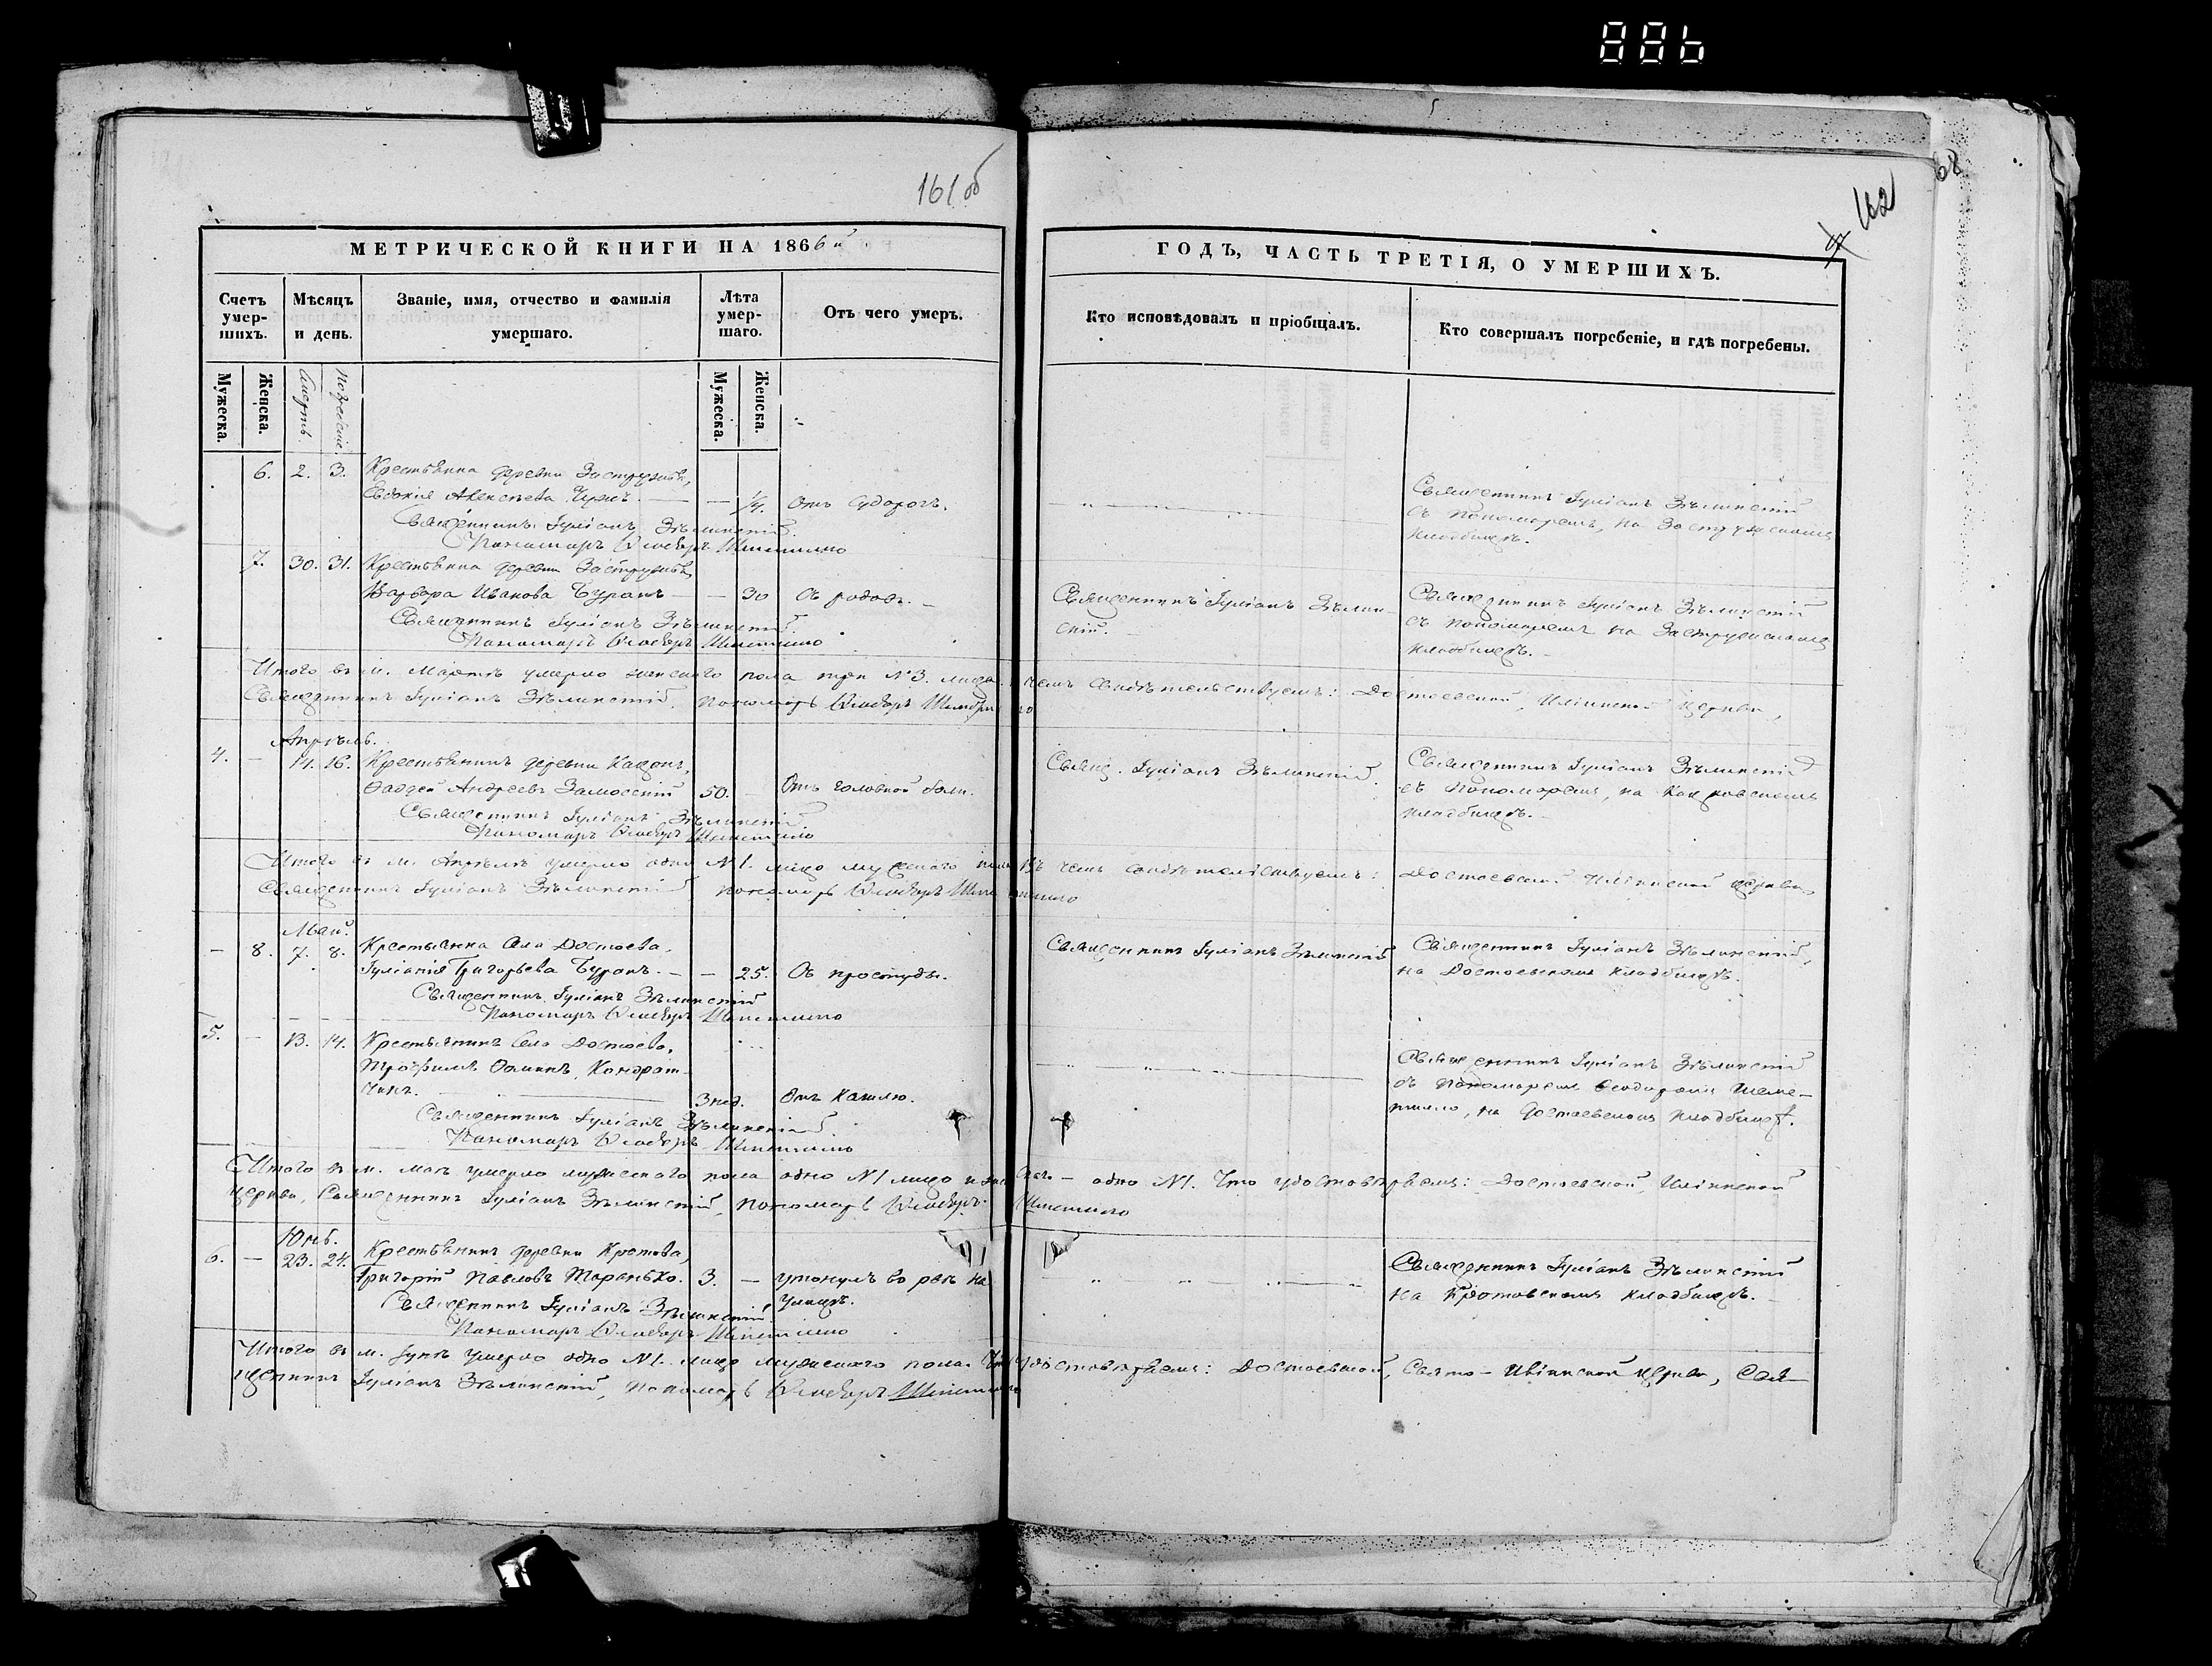 886
161 об
68
162
МЕТРИЧЕСКОЙ КНИГИ НА 1866й
ГОДЪ, ЧАСТЬ ТРЕТІЯ, О УМЕРШИХЪ.
Счетъ умер- шихъ.
Мѣсяцъ и день.
Званіе, имя, отчество и фамилія умершаго.
Лѣта умер- шаго.
Отъ чего умеръ.
Кто исповѣдовалъ и пріобщалъ.
Кто совершалъ погребеніе, и гдѣ погребены.
Мужеска.
Женска.
Смерть.
Погребеніе.
Мужеска.
Женска.
6. 2. 3. Крестьянка деревни
Евдокія Алексѣева — — 1/4. Отъ судорогъ.
Священникъ Іуліанъ Зѣлинскій.
Пономарь Ѳеодоръ
Священникъ Іуліанъ Зѣлинскій
съ пономаремъ, на
кладбищѣ.
7. 30. 31. Крестьянка деревни
Варвара Иванова Буракъ — — 30 Съ родовъ. —
Священникъ Іуліанъ Зѣлинскій.
Пономарь Ѳеодоръ
Священникъ Іуліанъ Зѣлин-
скій.
Священникъ Іуліанъ Зѣлинскій
съ пономаремъ на
кладбищѣ. —
Итого въ м. Мартѣ умерло женскаго пола три №3. лица. чемъ свидѣтельствуемъ: Достоевской, Иліинской Церкви,
Священникъ Іуліанъ Зѣлинскій. Пономарь Ѳеодоръ
Апрѣль.
4. — 14. 16. Крестьянинъ деревни
Ѳаддей Андреевъ Замосскій 50. — Отъ головной боли.
Священникъ Іуліанъ Зѣлинскій
Пономарь Ѳеодоръ
Свящ. Іуліанъ Зѣлинскій.
Священникъ Іуліанъ Зѣлинскій
съ Пономаремъ, на
кладбищѣ. —
Итого въ м. Апрѣлѣ умерло одно №1. лицо мужескаго пола. Въ чемъ свидѣтельствуемъ: Достоевской Иліинской церкви,
Священникъ Іуліанъ Зѣлинскій пономарь Ѳеодоръ
Май.
— 8. 7. 8. Крестьянка села Достоева,
Іуліанія Григорьева Буракъ. — — 25. Съ простуды.
Священникъ Іуліанъ Зѣлинскій
Пономарь Ѳеодоръ
Священникъ Іуліанъ Зѣлинскій
Священникъ Іуліанъ Зѣлинскій,
на Достоевскомъ кладбищѣ.
5. — 13. 14. Крестьянинъ села Достоева,
Трофимъ Ѳоминъ Кондрат-
чикъ. 3 нед. Отъ кашлю.
Священникъ Іуліанъ Зѣлинскій.
Пономарь Ѳеодоръ
Священникъ Іуліанъ Зѣлинскій
съ Пономаремъ Ѳеодоромъ
на Достоевскомъ кладбищѣ.
Итого въ м. маѣ умерло мужескаго пола одно №1 лицо и — одно №1. Что удостовѣряемъ: Достоевской, Иліинской
церкви, Священникъ Іуліанъ Зѣлинскій, пономарь Ѳеодоръ
Юнь.
6. — 23. 24. Крестьянинъ деревни Кротова,
Григорій Павловъ Таранько. 3. — утонулъ во рвѣ на
улицѣ.
Священникъ Іуліанъ Зѣлинскій.
Пономарь Ѳеодоръ
Священникъ Іуліанъ Зѣлинскій
на Кротовскомъ кладбищѣ. —
Итого въ м. Іунѣ умерло одно №1. лицо мужескаго пола. Что удостовѣряемъ: Достоевской, Свято-Иліинской Церкви, Свя-
щенникъ Іуліанъ Зѣлинскій, пономарь Ѳеодоръ